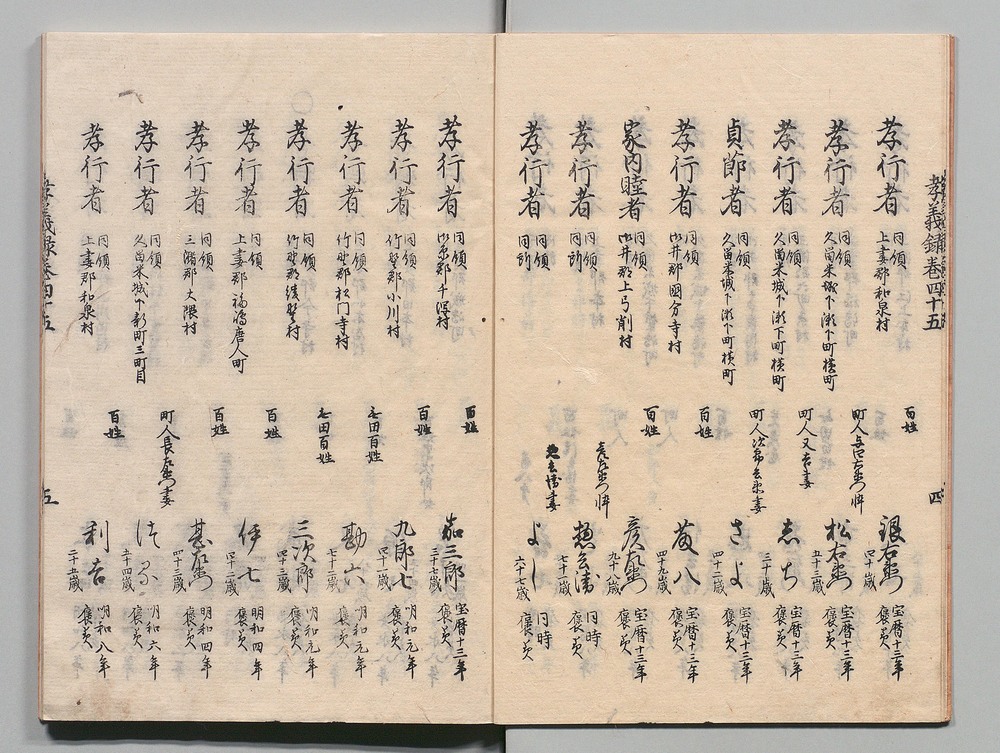 孝義録巻四十五
孝行者 同領 上妻郡和泉村 百姓 銀右衛門 四十八歳 宝暦十三年 褒美
孝行者 同領 久留米城下瀬下町横町 町人与右衛門忰 松右衛門 五十三歳 宝暦十三年 褒美
孝行者 同領 久留米城下瀬下町横町 町人又吉妻 志ち 三十歳 宝暦十三年 褒美
貞節者 同領 久留米城下瀬下町横町 町人次郎兵衛妻 さよ 四十二歳 宝暦十三年 褒美
孝行者 同領 御井郡国分寺村 百姓 藤八 四十九歳 宝暦十三年 褒美
家内睦者 同領 御井郡上弓削村 百姓 彦右衛門 九十八歳 宝暦十三年 褒美
孝行者 同領 同所 彦右衛門忰 惣兵衛 七十歳 同時 褒美
孝行者 同領 同所 惣兵衛妻 よし 六十七歳 同時 褒美
四
孝行者 同領 御原郡干潟村 百姓 茄三郎 三十七歳 宝暦十三年 褒美
孝行者 同領 竹野郡小川村 百姓 九郎七 四十一歳 明和元年 褒美
孝行者 同領 竹野郡松門寺村 百姓 勘六 七十三歳 明和元年 褒美
孝行者 同領 竹野郡 百姓 三次郎 四十三歳 明和元年 褒美
孝行者 同領 上妻郡福嶋唐人町 百姓 伊七 四十二歳 明和四年 褒美
孝行者 同領 三潴郡大隈村 百姓 甚右衛門 四十三歳 明和四年 褒美
孝行者 同領 久留米城下新町三町目 町人長右衛門妻 五十四歳 明和六年 褒美
孝行者 同領 上妻郡和泉村 百姓 利吉 二十五歳 明和八年 褒美
孝義録巻四十五
五